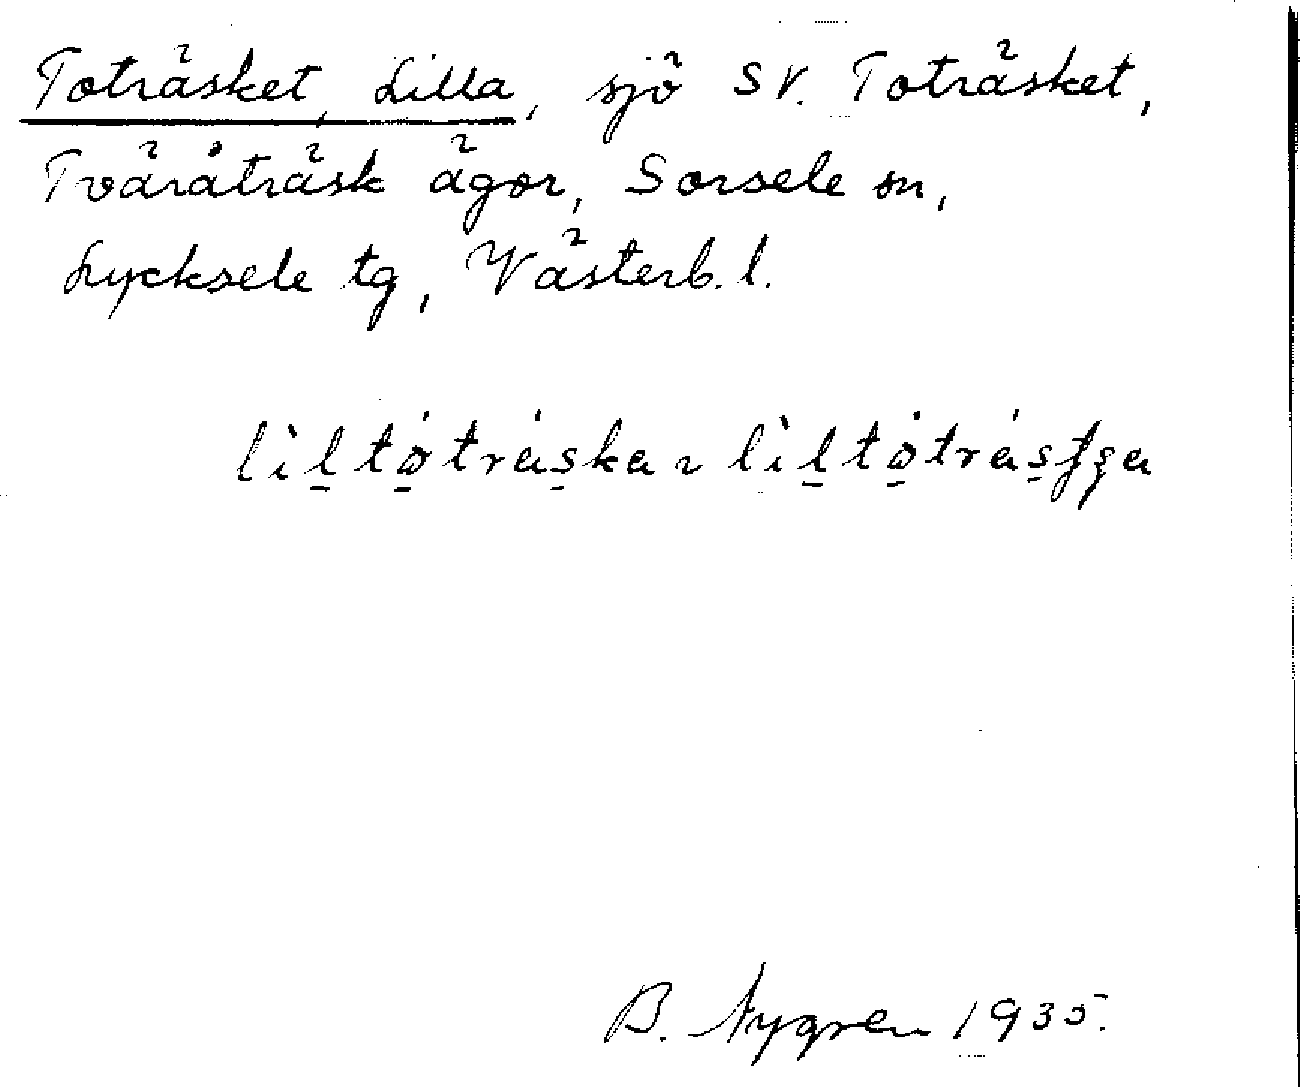 Toträsket, Lilla, sjö SV. Toträsket,
Tväråträsk ägor, Sorsele sn,
Lycksele tg, Västerb. l.
lìl̠tó̠tráṣka ~ lìl̠tó̠tráṣʃʒa
B. Nygren 1935.